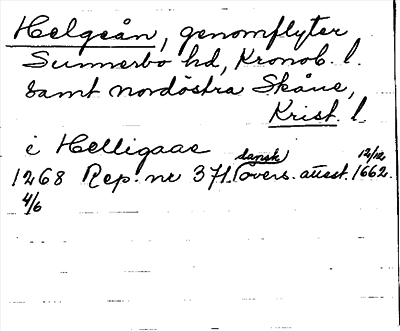 Helgeån, genomflyter
Sunnerbo hd, Kronob. l.
samt nordöstra Skåne,
Krist. l.
i Helligaae
1268 Rep. nr 371. (dansk overs. attest. 12/12 1662.
4/6